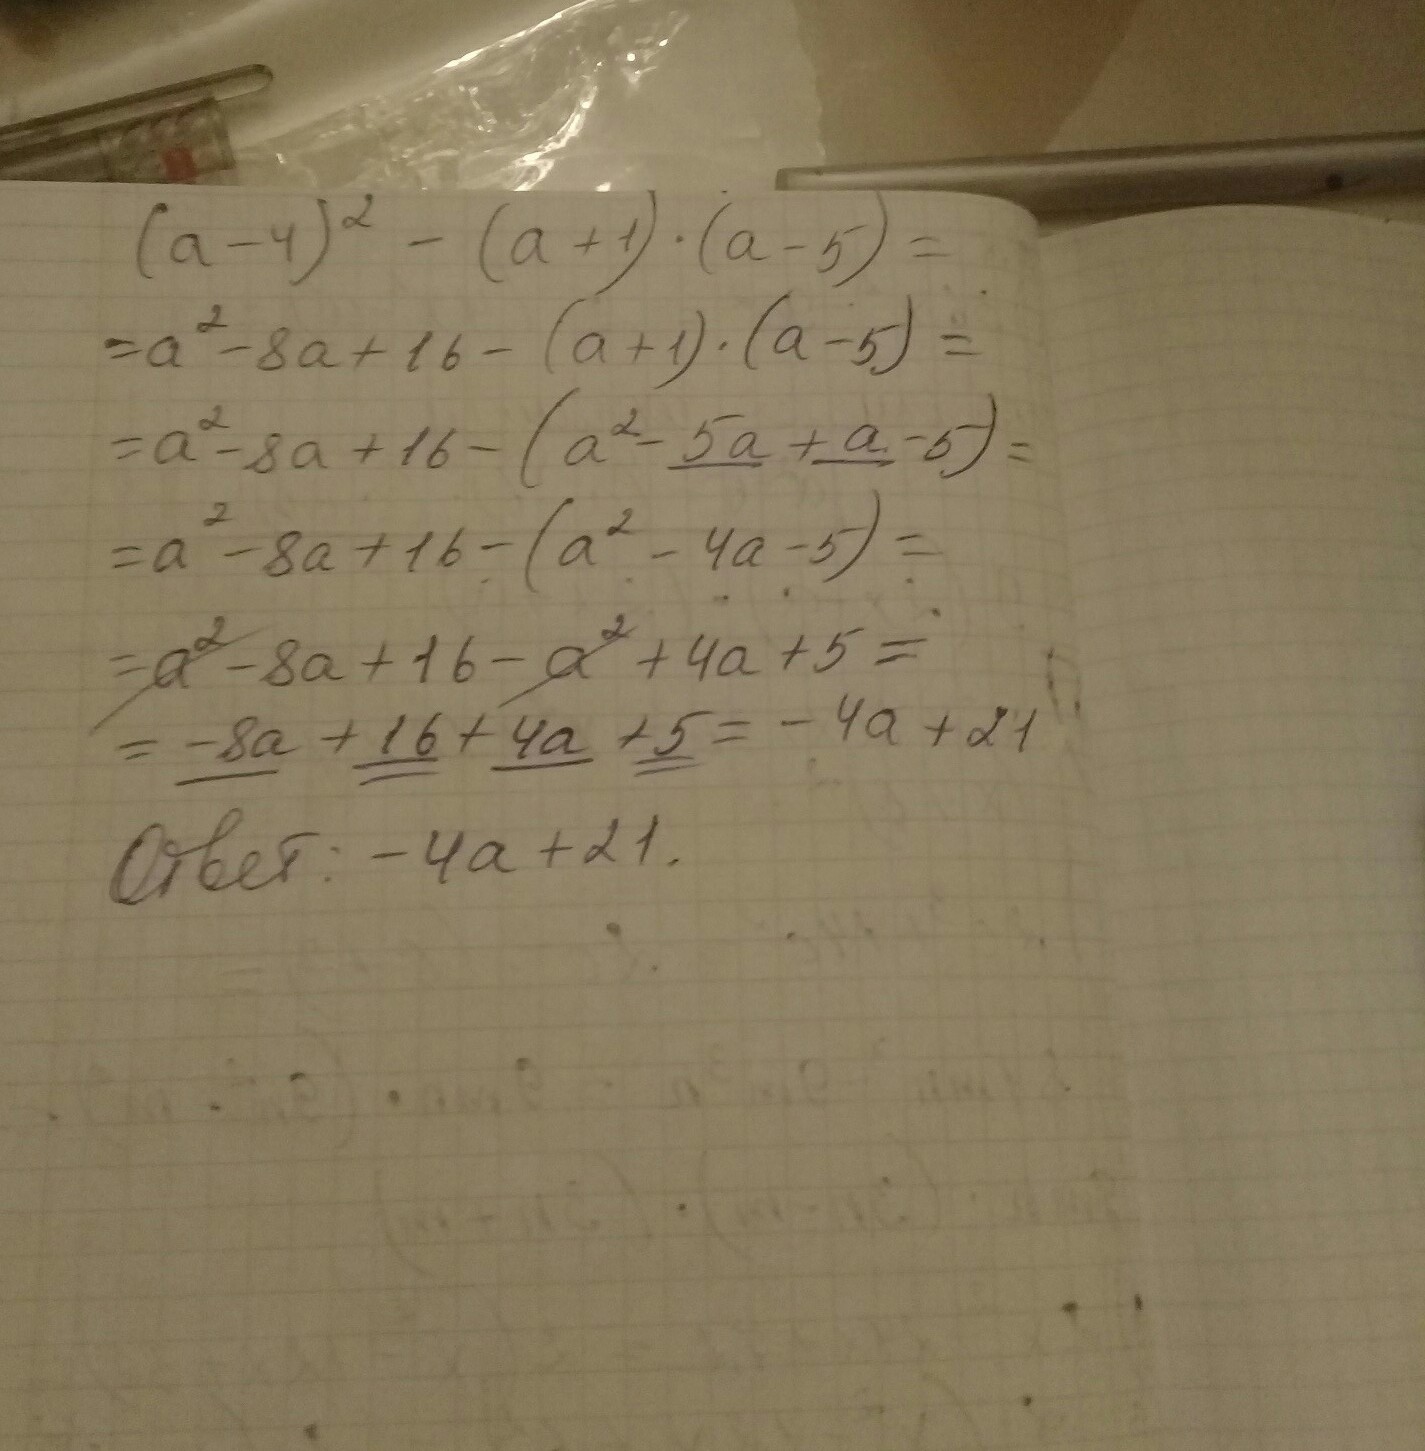 (a-4)² - (a+1)·(a-5)=
=a²-8a+16-(a+1)·(a-5)=
=a²-8a+16-(a²-5a+a-5)=
=a²-8a+16-(a²-4a-5)=
=a²-8a+16-a²+4a+5=
=-8a+16+4a+5=-4a+21
Ответ: -4a+21.